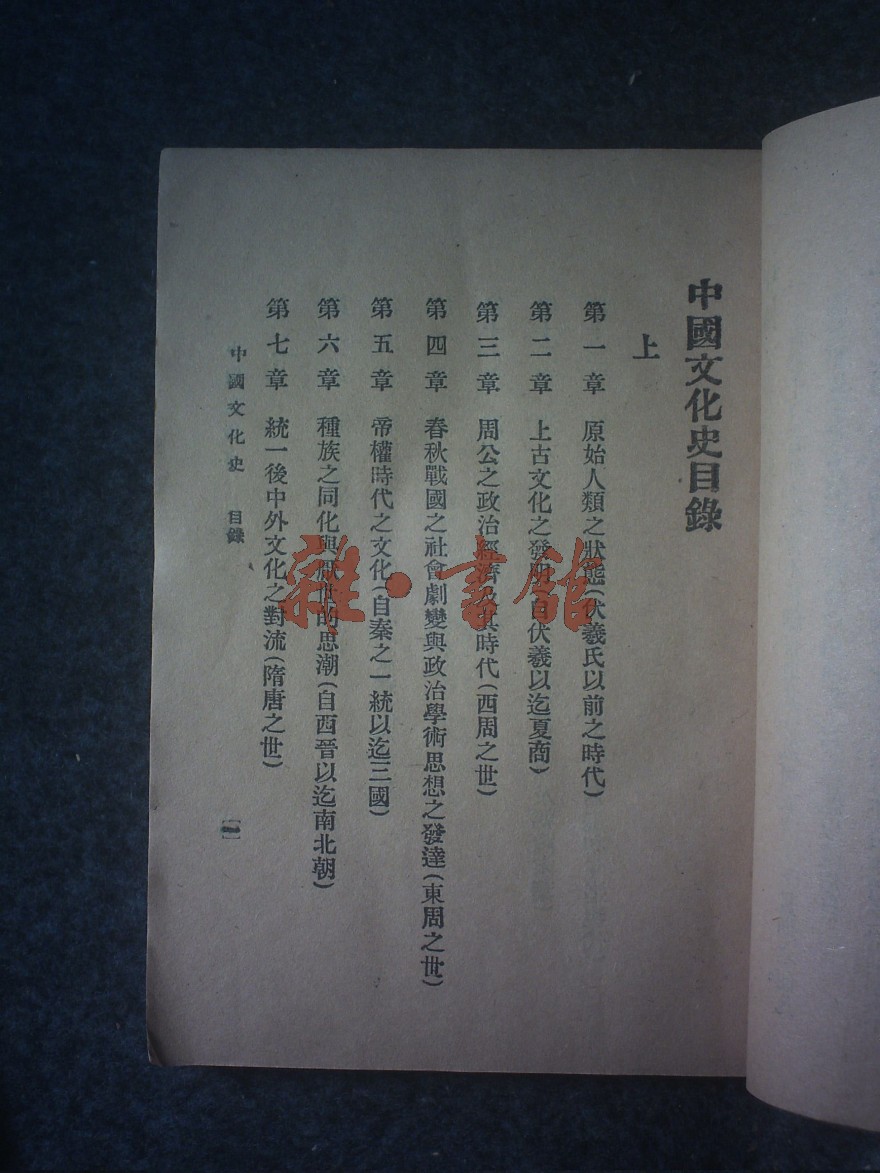 中國文化史目錄
上
第一章 原始人類之狀態(伏羲氏以前之時代)
第二章 上古文化之發明(自伏羲以迄夏商)
第三章 周公之政治經濟及其時代(西周之世)
第四章 春秋戰國之社會劇變與政治學術思想之發達(東周之世)
第五章 帝權時代之文化(自秦之一統以迄三國)
第六章 種族之同化與厭世的思潮(自西晉以迄南北朝)
第七章 統一後中外文化之對流(隋唐之世)
中國文化史 目錄
[一]
雜·書館